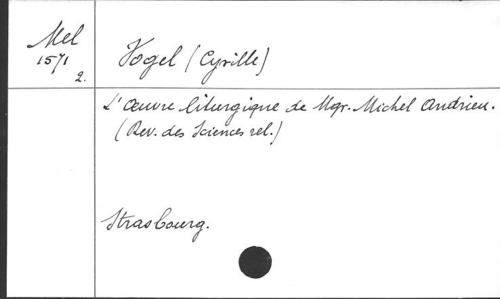 Mel
1571
2.
Vogel (Cyrille)
L'Œuvre liturgique de Mgr. Michel Andrieu.
(Rev. des Sciences rel.)
Strasbourg.